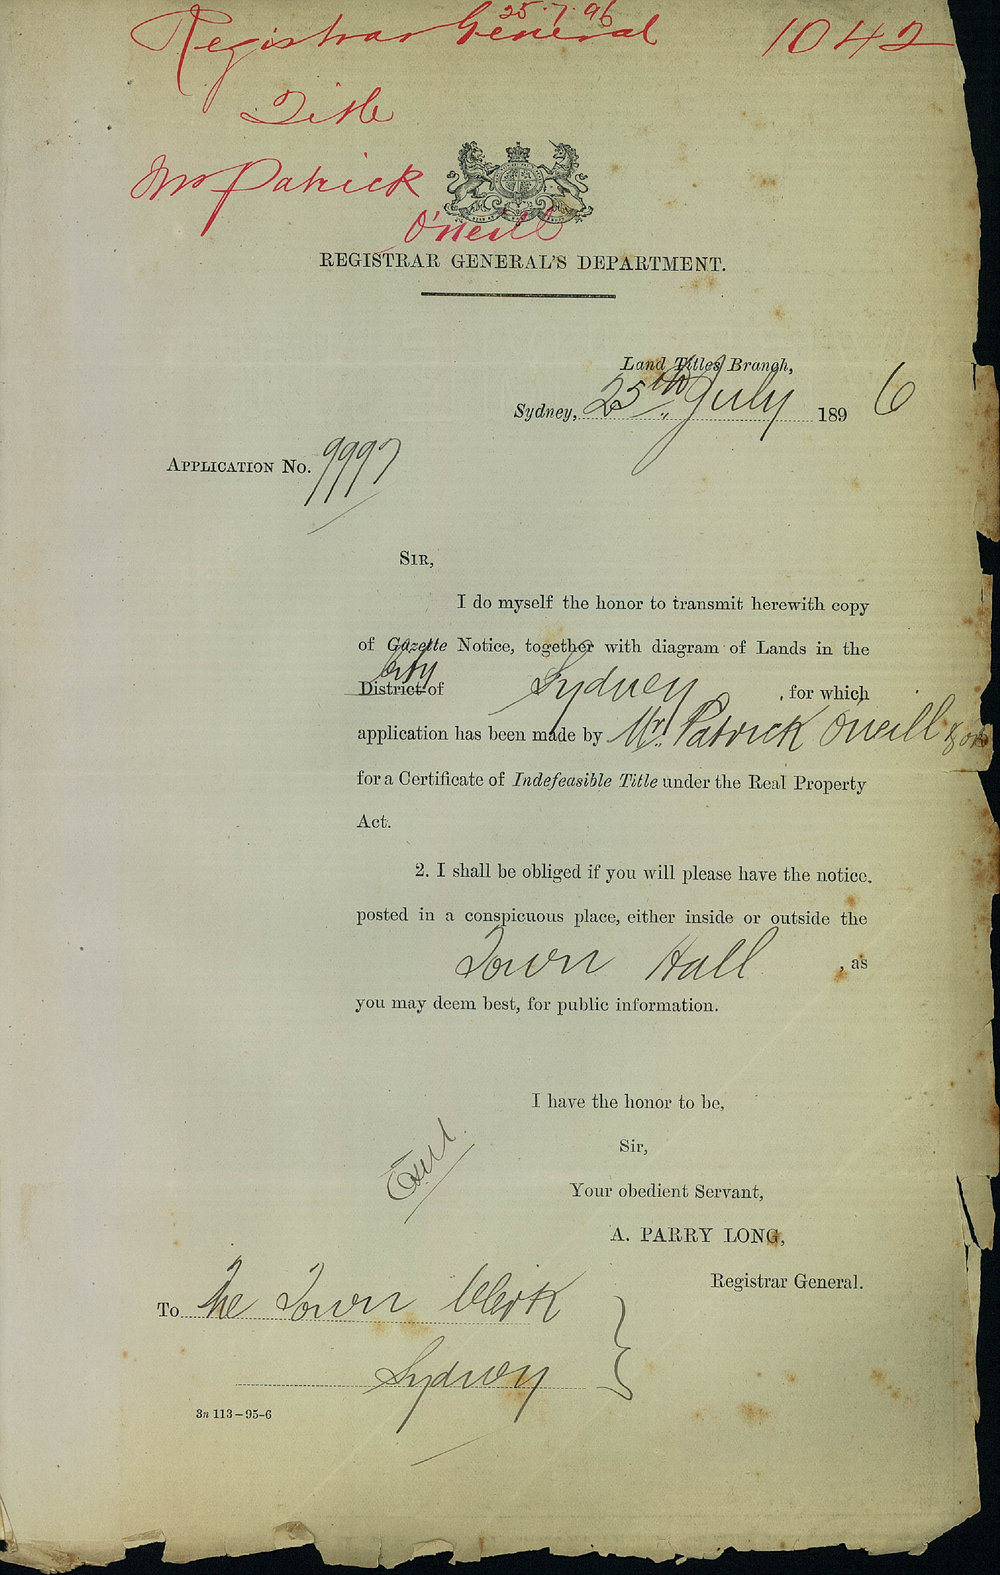 25.7.96
Registrar General 1042
Title
Mr Patrick
O'Neill
REGISTRAR GENERAL'S DEPARTMENT.
Land Titles Branch,
Sydney, 25th July 1896
APPLICATION No. 9997
SIR,
I do myself the honor to transmit herewith copy
of Gazette Notice, together with diagram of Lands in the
City
District of Sydney, for which
application has been made by Mr. Patrick O'Neill & or
for a Certificate of Indefeasible Title under the Real Property
Act.
2. I shall be obliged if you will please have the notice
posted in a conspicuous place, either inside or outside the
Town Hall, as
you may deem best, for public information.
I have the honor to be,
Sir,
Your obedient Servant,
A. PARRY LONG,
Registrar General.
To The Town Clerk
Sydney
3n 113-95-6